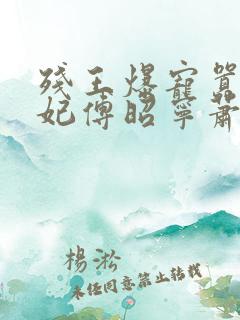 残王爆宠嚣
妃傅昭宁萧
楊淞
未经同意禁止转载